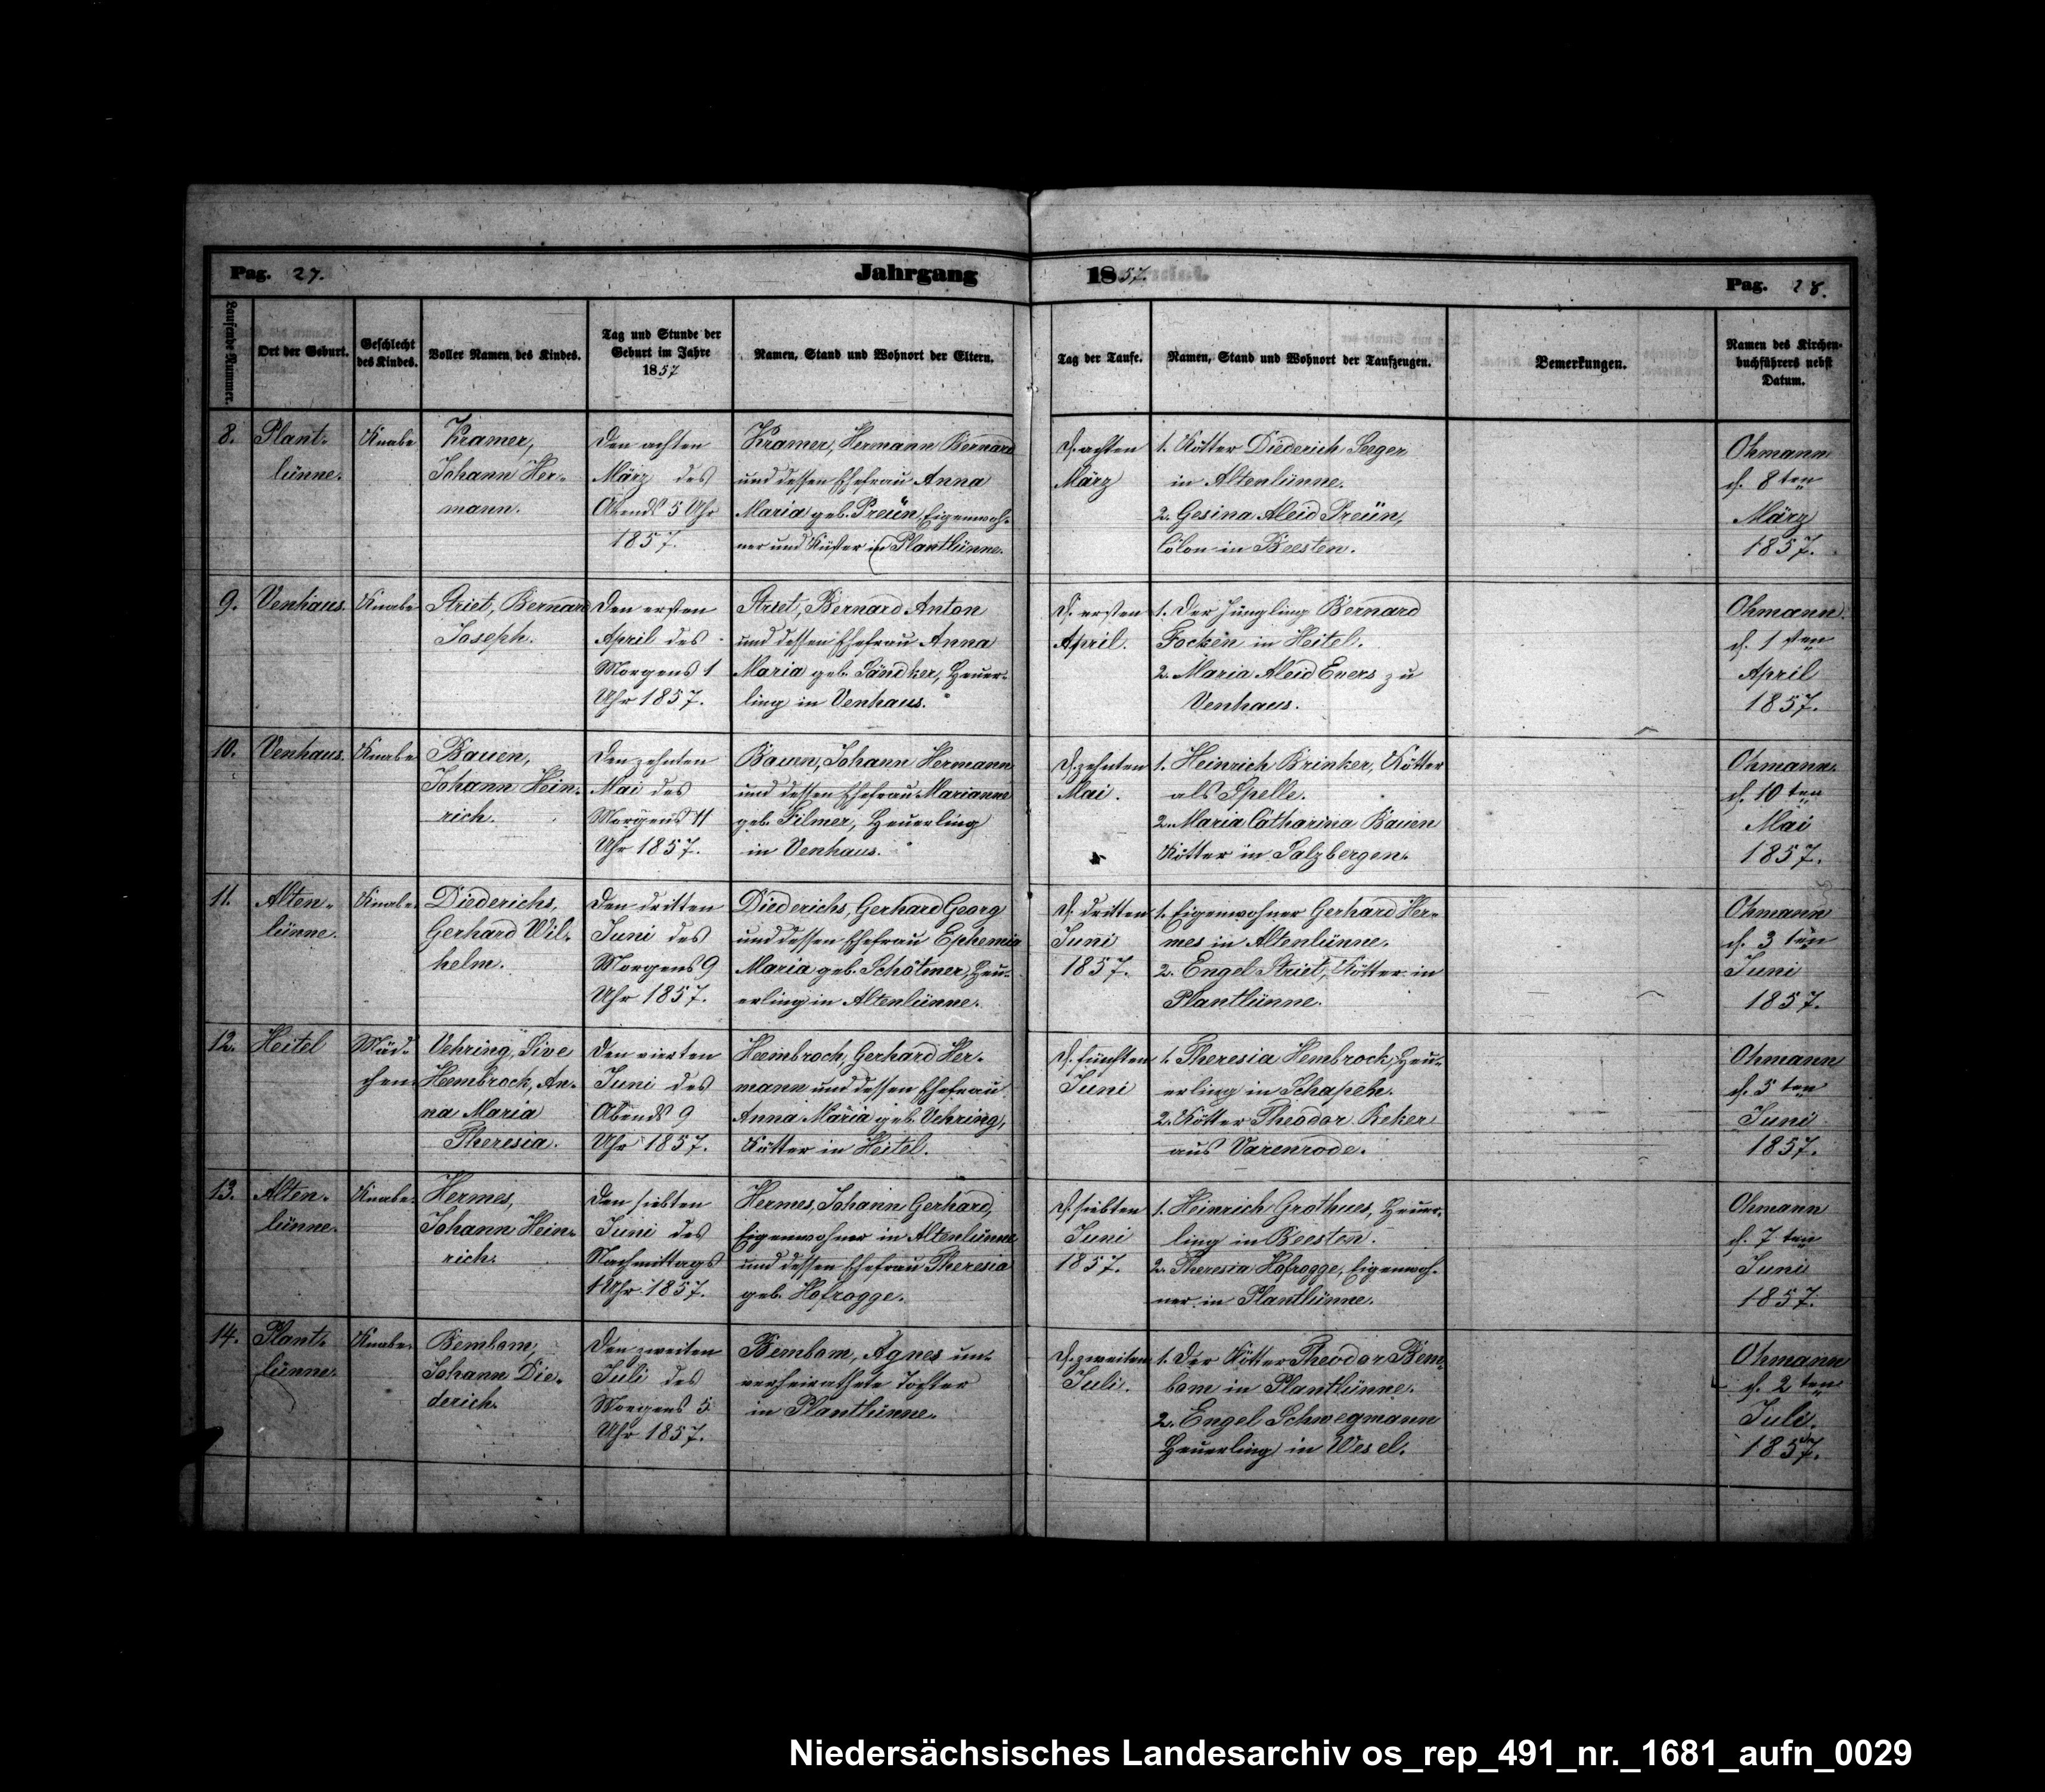 Pag. 27.
Jahrgang
1857.
Pag. 28.
Laufende Nummer.
Ort der Geburt.
Geschlecht
des Kindes.
Voller Namen des Kindes.
Tag und Stunde der
Geburt im Jahre
1857
Namen, Stand und Wohnort der Eltern.
Tag der Taufe.
Namen, Stand und Wohnort der Taufzeugen.
Bemerkungen.
Namen des Kirchen-
buchführers nebst
Datum.
8.
Plant-
lünne.
Knabe
Kramer,
Johann Her-
mann.
Den achten
März des
Abends 5 Uhr
1857.
Kramer, Hermann Bernard
und dessen Ehefrau Anna
Maria geb. Preün, Eigenwoh-
ner und Küster in Plantlünne.
D. achten
März
1. Kötter Diederich Seeger
in Altenlünne.
2. Gesina Aleid Preün,
Colon in Beesten.
Ohmann
d. 8 ten
März
1857.
9.
Venhaus.
Knabe
Striet, Bernard
Joseph.
Den ersten
April des
Morgens 1
Uhr 1857.
Striet, Bernard Anton
und dessen Ehefrau Anna
Maria geb. Sändker, Heuer-
ling in Venhaus.
D. ersten
April.
1. Der Jüngling Bernard
Focken in Heitel.
2. Maria Aleid Evers zu
Venhaus.
Ohmann
d. 1 sten
April
1857.
10.
Venhaus.
Knabe
Bauen,
Johann Hein-
rich.
Den zehnten
Mai des
Morgens 11
Uhr 1857.
Bauen, Johann Hermann
und dessen Ehefrau Marianne
geb. Filmer, Heuerling
in Venhaus.
D. zehnten
Mai.
1. Heinrich Brinker, Kötter
als Spelle.
2. Maria Catharina Bauen
Kötter in Salzbergen.
Ohmann
d. 10 ten
Mai
1857.
11.
Alten-
lünne.
Knabe.
Diederichs,
Gerhard Wil-
helm.
Den dritten
Juni des
Morgens 9
Uhr 1857.
Diederichs, Gerhard Georg
und dessen Ehefrau Ephemia
Maria geb. Schötmer, Heu-
erling in Altenlünne.
D. dritten
Juni
1857.
1. Eigenwohner Gerhard Her-
mes in Altenlünne.
2. Engel Striet, Kötter in
Plantlünne.
Ohmann
d. 3 ten
Juni
1857.
12.
Heitel
Mäd-
chen
Vehring, Sive
Hembrock, An-
na Maria
Theresia.
Den vierten
Juni des
Abends 9
Uhr 1857.
Hembrock, Gerhard Her-
mann und dessen Ehefrau
Anna Maria geb. Vehring,
Kötter in Heitel.
D. fünften
Juni
1. Theresia Hembrock, Heu-
erling in Schapen.
2. Kötter Theodor Reker
aus Varenrode.
Ohmann
d. 5 ten
Juni
1857.
13.
Alten-
lünne.
Knabe.
Hermes,
Johann Hein-
rich.
Den siebten
Juni des
Nachmittags
1 Uhr 1857.
Hermes, Johann Gerhard,
Eigenwohner in Altenlünne
und dessen Ehefrau Theresia
geb. Hofrogge.
D. siebten
Juni
1857.
1. Heinrich Grothues, Heuer-
ling in Beesten.
2. Theresia Hofrogge, Eigenwoh-
ner in Plantlünne.
Ohmann
d. 7 ten
Juni
1857.
14.
Plant-
lünne.
Knabe.
Bembom,
Johann Die-
derich.
Den zweiten
Juli des
Morgens 5
Uhr 1857.
Bembom, Agnes un-
verheirathete Tochter
in Plantlünne.
D. zweiten
Juli.
1. Der Kötter Theodor Bem-
bom in Plantlünne.
2. Engel Schwegmann
Heuerling in Wesel.
Ohmann
d. 2 ten
Juli.
1857.
Niedersächsisches Landesarchiv os_rep_491_nr._1681_aufn_0029